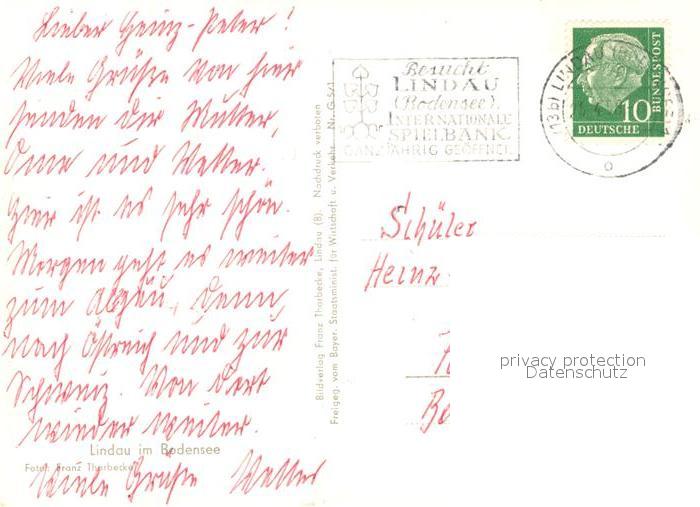 Lieber Heinz-Peter!
Viele Grüße von hier
senden dir Mutter,
Oma und Vetter.
Hier ist es sehr schön.
Morgen geht es weiter
zum Algäu, dann
nach Östreich und zur
Schweiz. Von dort
wieder weiter.
Viele Grüße Vetter
Lindau im Bodensee
Foto: Franz Thorbecke
Bildverlag Franz Thorbecke, Lindau (B). Nachdruck verboten
Freigeg. vom Bayer. Staatsminist. für Wirtschaft u. Verkehr Nr. G5/
Besucht
LINDAU
(Bodensee).
INTERNATIONALE
SPIELBANK
GANZJÄHRIG GEÖFFNET.
(13b) LINDAU
10
DEUTSCHE
BUNDESPOST
Schüler
Heinz
privacy protection
Datenschutz